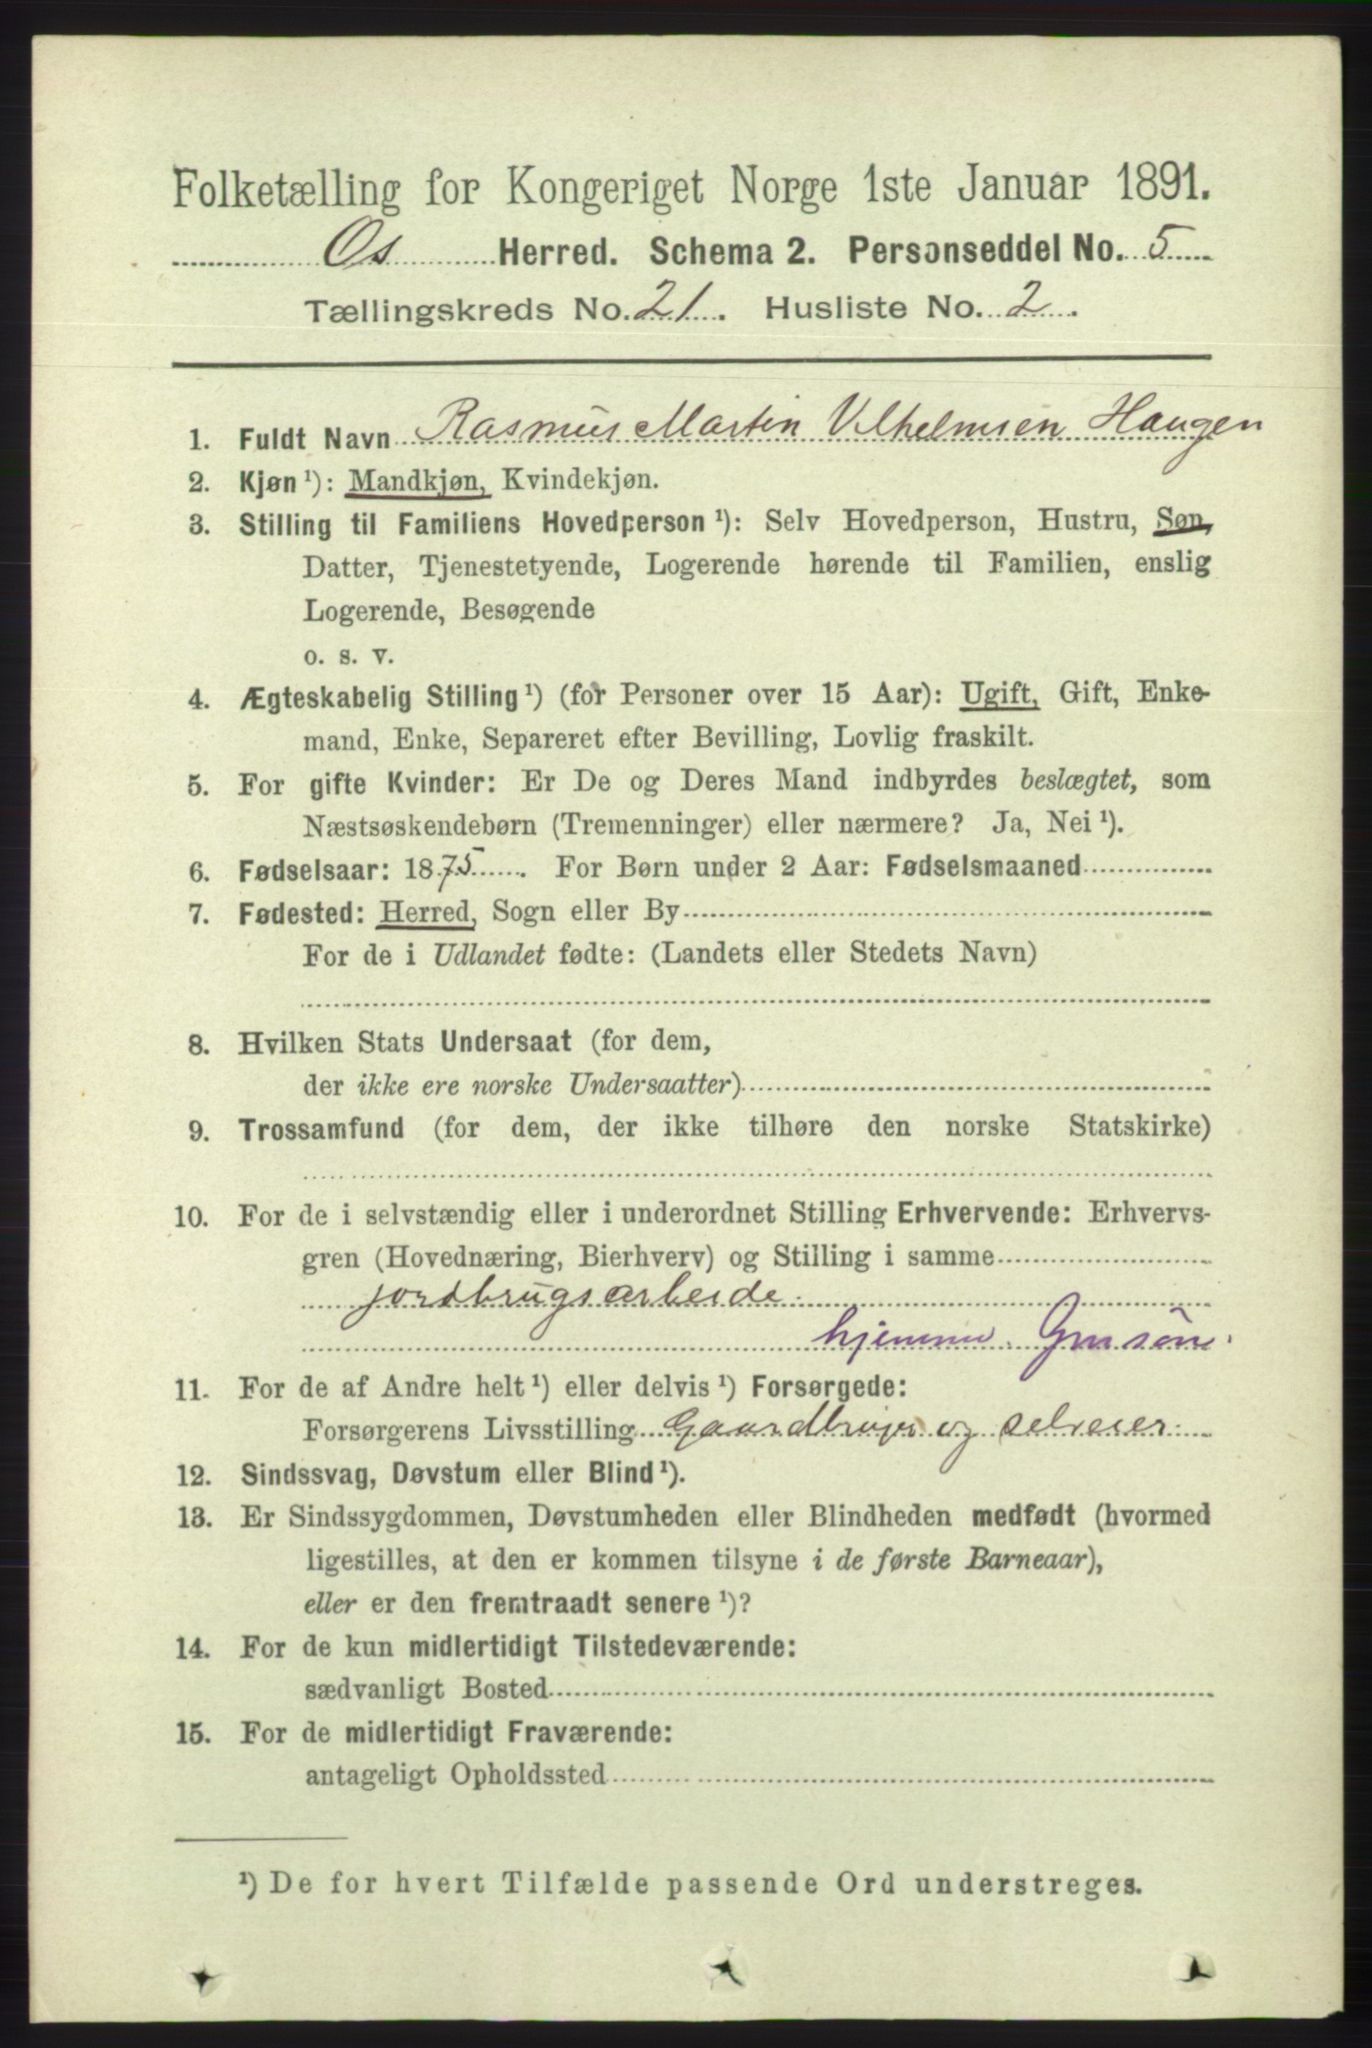 Folketælling for Kongeriget Norge 1ste Januar 1891.
Os Herred. Schema 2. Personseddel No. 5
Tællingskreds No. 21. Husliste No. 2.
1. Fuldt Navn Rasmus Martin Vilhelmsen Haugen
2. Kjøn¹): Mandkjøn, Kvindekjøn.
3. Stilling til Familiens Hovedperson¹): Selv Hovedperson, Hustru, Søn,
Datter, Tjenestetyende, Logerende hørende til Familien, enslig
Logerende, Besøgende
o. s. v.
4. Ægteskabelig Stilling¹) (for Personer over 15 Aar): Ugift, Gift, Enke-
mand, Enke, Separeret efter Bevilling, Lovlig fraskilt.
5. For gifte Kvinder: Er De og Deres Mand indbyrdes beslægtet, som
Næstsøskendebørn (Tremenninger) eller nærmere? Ja, Nei¹).
6. Fødselsaar: 1875. For Børn under 2 Aar: Fødselsmaaned
7. Fødested: Herred, Sogn eller By
For de i Udlandet fødte: (Landets eller Stedets Navn)
8. Hvilken Stats Undersaat (for dem,
der ikke ere norske Undersaatter)
9. Trossamfund (for dem, der ikke tilhøre den norske Statskirke)
10. For de i selvstændig eller i underordnet Stilling Erhvervende: Erhvervs-
gren (Hovednæring, Bierhverv) og Stilling i samme
jordbrugsarbeide
hjemme. Gmsøn.
11. For de af Andre helt¹) eller delvis¹) Forsørgede:
Forsørgerens Livsstilling Gaardbruger og selveier
12. Sindssvag, Døvstum eller Blind¹).
13. Er Sindssygdommen, Døvstumheden eller Blindheden medfødt (hvormed
ligestilles, at den er kommen tilsyne i de første Barneaar),
eller er den fremtraadt senere¹)?
14. For de kun midlertidigt Tilstedeværende:
sædvanligt Bosted
15. For de midlertidigt Fraværende:
antageligt Opholdssted
¹) De for hvert Tilfælde passende Ord understreges.